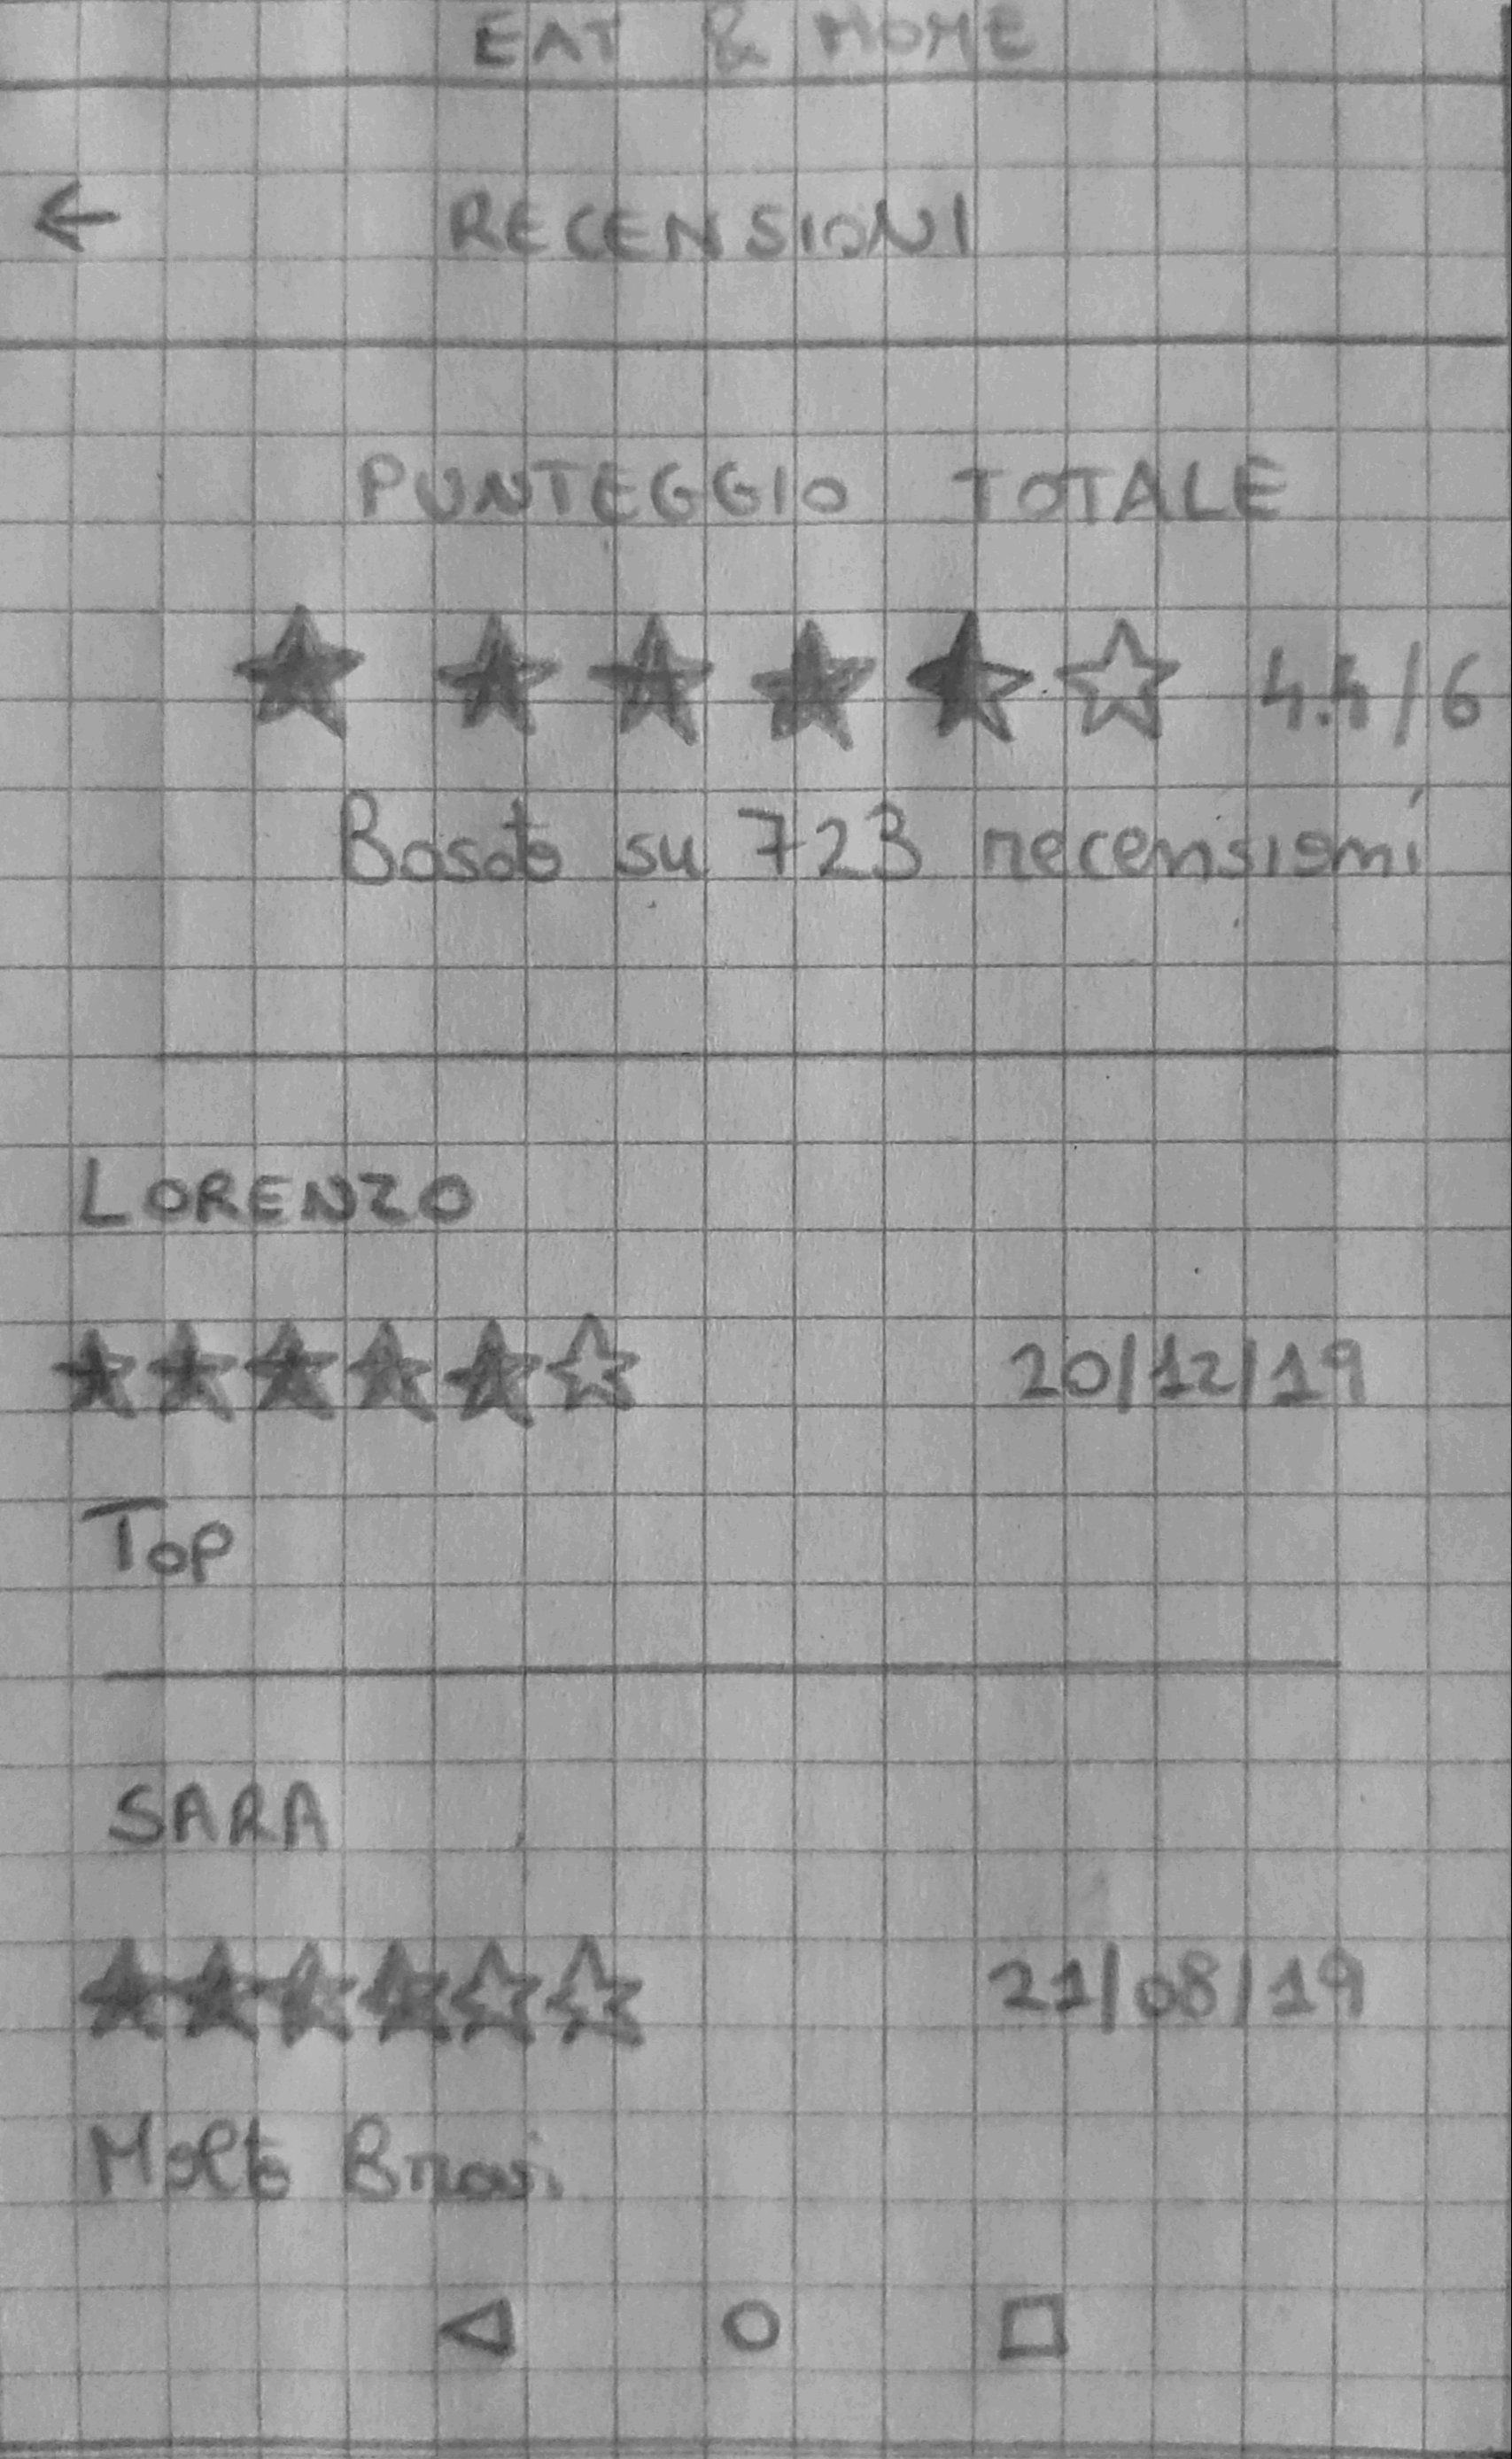 EAT & HOME
RECENSIONI
PUNTEGGIO TOTALE
4.4/6
Basato su 723 recensioni
LORENZO
20/12/19
Top
SARA
21/08/19
Molto Bravi